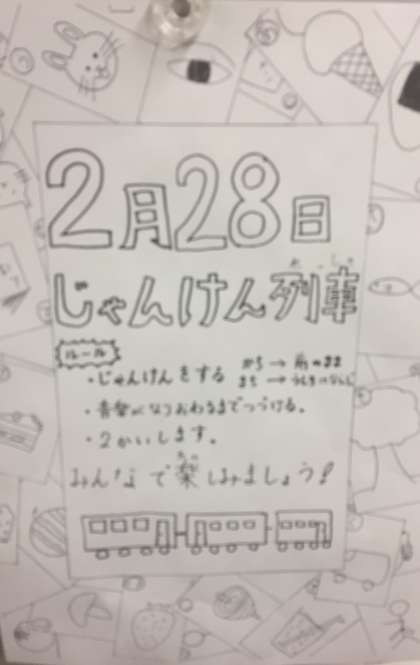 2月28日
じゃんけん列車
ルール
・じゃんけんをする かち→前のまま
まち→うしろにならぶ
・音楽がなりおわるまでつづける。
・2かいします。
みんなで楽しみましょう!